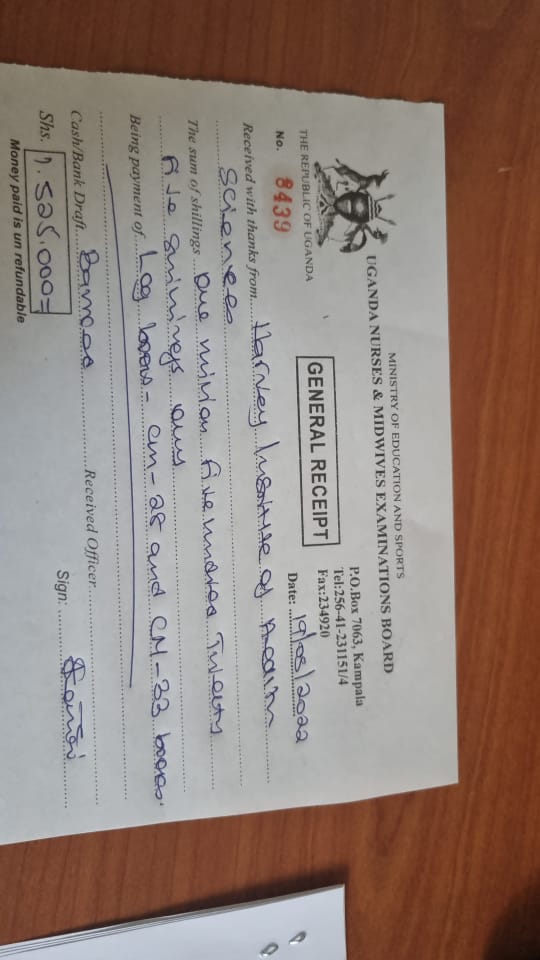 MINISTRY OF EDUCATION AND SPORTS
UGANDA NURSES & MIDWIVES EXAMINATIONS BOARD
P.O.Box 7063, Kampala
Tel:256-41-231151/4
Fax:234920
GENERAL RECEIPT
THE REPUBLIC OF UGANDA
Date: 19/08/2022
No. 8439
Received with thanks from Harvey Institute of Health
Sciences
The sum of shillings One million five hundred Twenty
five shillings only
Being payment of Log books - CM-28 and CM-33 books.
Cash/Bank Draft Banked Received Officer
Sign:
Shs. 1.525.000=
Money paid is un refundable